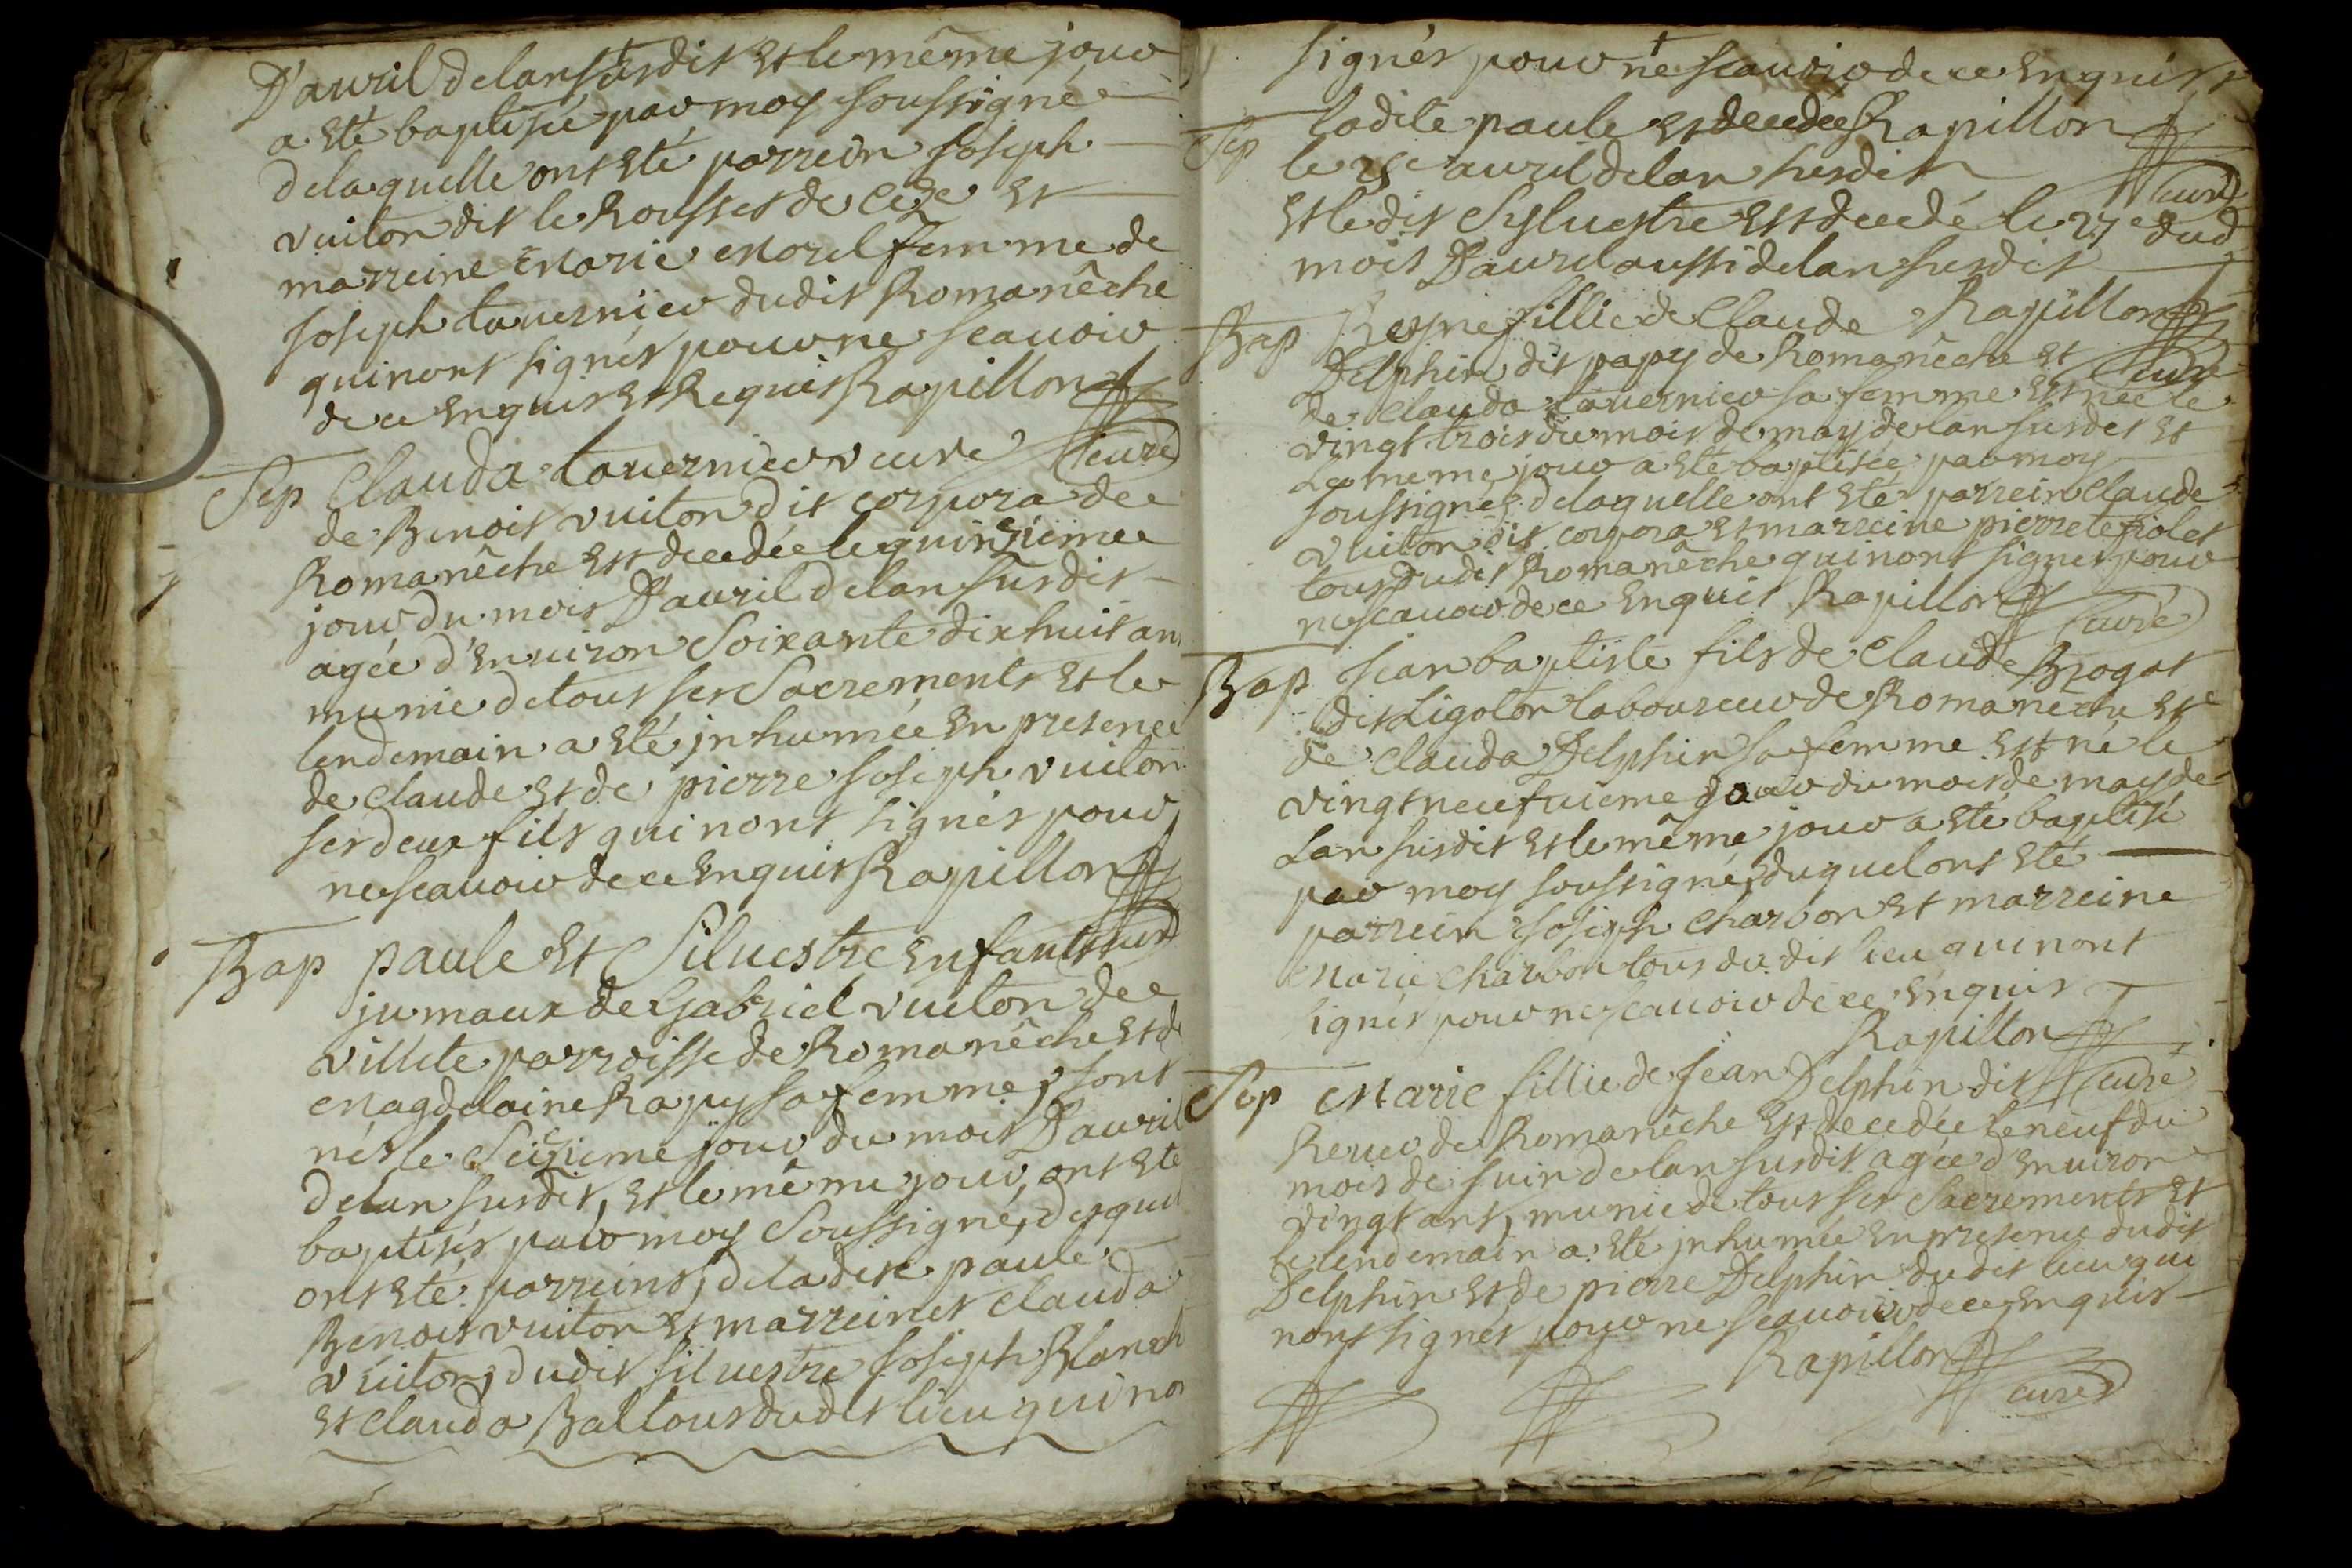 D'auril delansusdit et le même jour
a eté baptisée par moy soussigné
delaquelle ont eté parrein joseph
vuiton dit le Rousset de ceze et
marreine Marie Morel femme de
joseph tauernier dudit Romanêche
qui nont signés pour ne scauoir
de ce enquis et Requis Rapillon
curé
Sep Clauda tauernier veuve
de Benoit vuiton dit corpora de
Romanêche est decedée le quinzieme
jour du mois D'auril delan susdit
agée d'enuiron soixante dix huit ans
munie de tous ses Sacrements et le
lendemain a eté jnhumée en presence
de claude et de pierre joseph vuiton
ses deux fils qui nont signés pour
ne scauoir de ce enquis Rapillon
curé
Bap paule et Siluestre enfants
jumaux de Gabriel vuiton de
villete parroisse de Romanêche et de
Magdelaine Rapy sa femme, sont
nés le Seizieme jour du mois D'auril
delan susdit, et le même jour, ont eté
baptisés par moy Soussigné, desquel
ont eté parreins, de ladite paule
Benoit vuiton et marreines clauda
vuiton, dudit siluestre joseph Blanch
et clauda Bal tous dudit lieu qui no
signés pour ne scauoir de ce enquis
Sep ladite paule et decedée Rapillon
le 25e auril delan susdit
curé
et le dit Syluestre est decedé le 27e dud
mois D'auril aussi delan susdit
Rapillon
curé
Bap Reyne fillie de Claude
Delphin dit papy de Romanêche et
de Clauda tauernier sa femme est née le
vingt trois du mois de may de lan susdit et
Le meme jour a eté baptisée par moy
soussigné, delaquelle ont eté parrein Claude
vuiton dit corpora et marreine pierrete fiolet
tous dudit Romanêche qui nont signés pour
ne scauoir de ce enquis Rapillon
curé
Bap jean baptiste fils de claude Brogat
dit Ligoton laboureur de Romanêche et
de Clauda Delphin sa femme est né le
vingt neufuieme jour du mois de may de
Lan susdit et le même jour a eté baptisé
par moy soussigné, duquel ont eté
parrein joseph charbon et marreine
Marie Charbon tous du dit lieu qui nont
signés pour ne scauoir de ce enquis
Rapillon
curé
Sep Marie fillie de jean Delphin dit
Reuer de Romanêche est decedée le neuf du
mois de juin de lan susdit agée d'enuiron
vingt ans, munie de tous ses Sacrements et
le lendemain a eté jnhumée en presence dudit
Delphin et de pierre Delphin dudit lieu qui
nont signés pour ne scauoir de ce enquis
Rapillon
curé